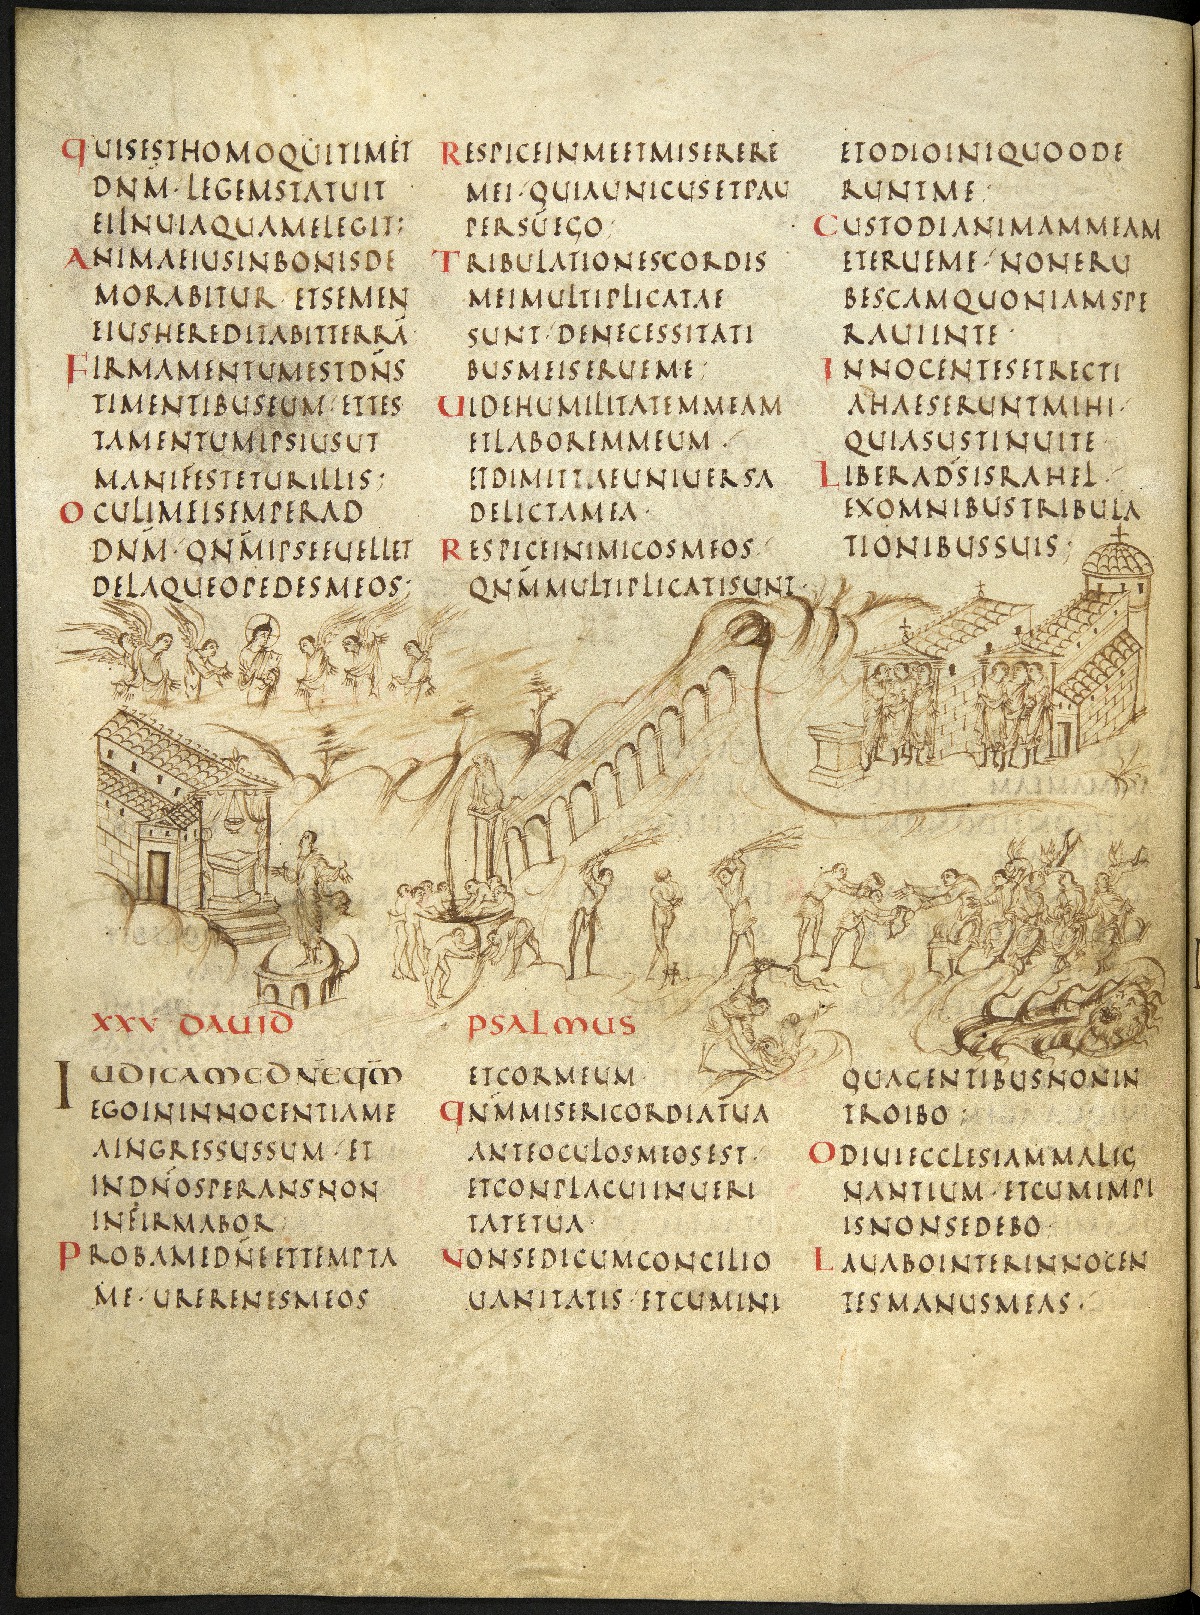 QUISESTHOMOQUITIMET
DN̄M· LEGEMSTATUIT
EIINUIAQUAMELEGIT;
ANIMAEIUSINBONISDE
MORABITUR· ETSEMEN
EIUSHEREDITABITTERRĀ
FIRMAMENTUMESTDN̄S
TIMENTIBUSEUM· ETTES
TAMENTUMIPSIUSUT
MANIFESTETURILLIS;
OCULIMEISEMPERAD
DN̄M· QN̄MIPSEEUELLET
DELAQUEOPEDESMEOS;
RESPICEINMEETMISERERE
MEI· QUIAUNICUSETPAU
PERSŪEGO·
TRIBULATIONESCORDIS
MEIMULTIPLICATAE
SUNT· DENECESSITATI
BUSMEISERUEME;
UIDEHUMILITATEMMEAM
ETLABOREMMEUM·
ETDIMITTAEUNIUERSA
DELICTAMEA·
RESPICEINIMICOSMEOS·
QN̄MMULTIPLICATISUNT·
ETODIOINIQUOODE
RUNTME;
CUSTODIANIMAMMEAM
ETERUEME· NONERU
BESCAMQUONIAMSPE
RAUIINTE·
INNOCENTESETRECTI
AHAESERUNTMIHI·
QUIASUSTINUITE·
LIBERADS̄ISRAHEL·
EXOMNIBUSTRIBULA
TIONIBUSSUIS;
XXV DAUID PSALMUS
IUDICAMEDN̄EQM̄
EGOININNOCENTIAME
AINGRESSUSSUM· ET
INDN̄OSPERANSNON
INFIRMABOR·
PROBAMEDN̄EETTEMPTA
ME· URERENESMEOS
ETCORMEUM·
QN̄MMISERICORDIATUA
ANTEOCULOSMEOSEST·
ETCONPLACUIINUERI
TATETUA·
NONSEDICUMCONCILIO
UANITATIS· ETCUMINI
QUAGENTIBUSNONIN
TROIBO;
ODIUIECCLESIAMMALIG
NANTIUM· ETCUMIMPI
ISNONSEDEBO·
LAUABOINTERINNOCEN
TESMANUSMEAS·